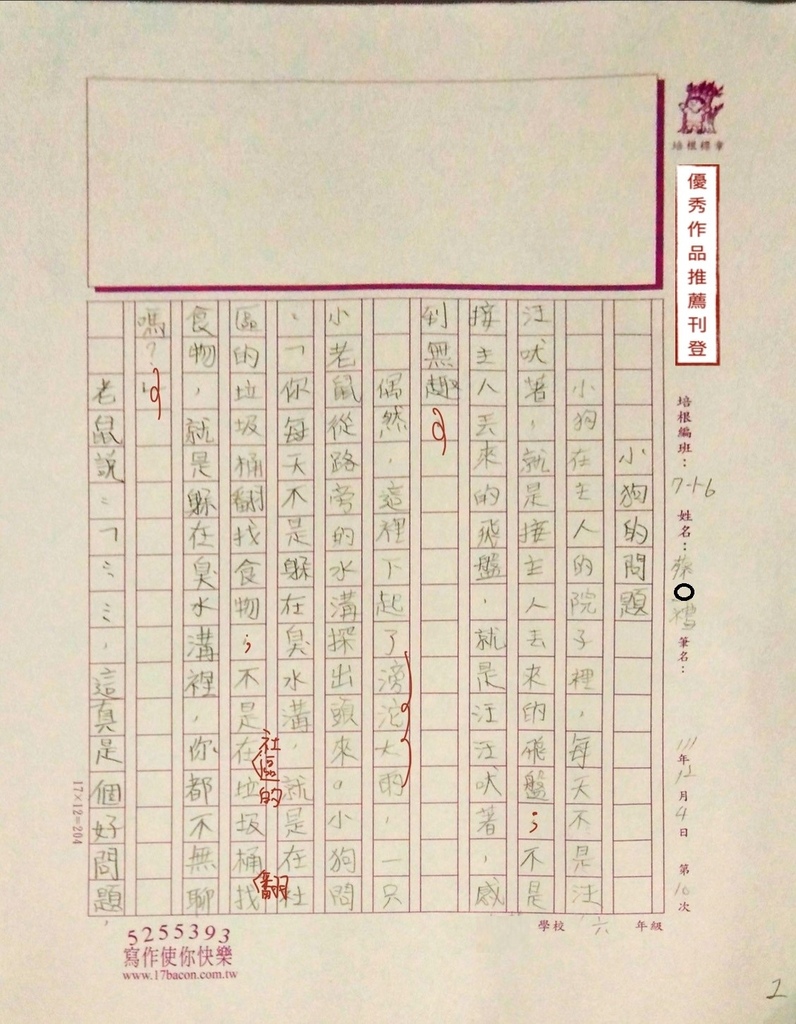 培根標章
優秀作品推薦刊登
培根編班：7-16 姓名：蔡 筆名：
111年12月4日 第10次
學校 六 年級
小狗的問題
小狗在主人的院子裡，每天不是汪
汪吠著，就是接主人丟來的飛盤；不是
接主人丟來的飛盤，就是汪汪吠著，感
到無趣。
偶然，這裡下起了滂沱大雨，一只
小老鼠從路旁的水溝探出頭來。小狗問
：「你每天不是躲在臭水溝，就是在社
區的垃圾桶翻找食物；不是在社區的垃圾桶翻找
食物，就是躲在臭水溝裡，你都不無聊
嗎？」
老鼠說：「……，這真是個好問題，
17×12=204
5255393
寫作使你快樂
www.17bacon.com.tw